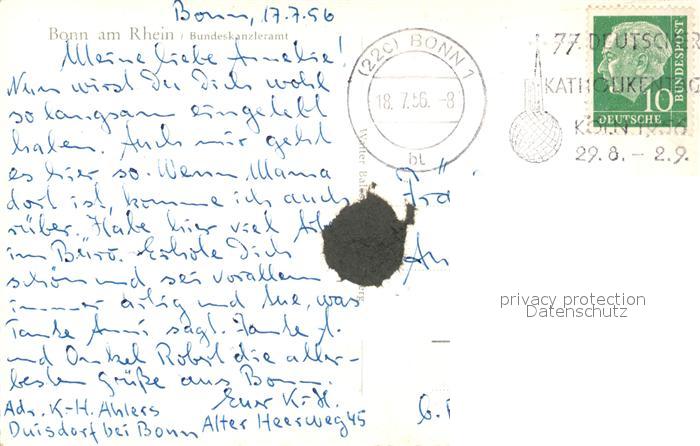 Bonn, 17.7.56
Bonn am Rhein / Bundeskanzleramt
Meine liebe Amelie!
Nun wirst Du Dich wohl
so langsam eingelebt
haben. Auch mir geht
es hier so. Wenn Mama
dort ist, komme ich auch
rüber. Habe hier viel
im Büro. Erhole Dich
schön und sei vor allem
immer artig und tue, was
Tante Anni sagt. Tante A.
und Onkel Robert die aller-
besten Grüße aus Bonn.
Euer K.-H.
Adr. K-H. Ahlers
Duisdorf bei Bonn Alter Heerweg 45
(22c) BONN 1
18.7.56.-8
bt
77. DEUTSCHER
KATHOLIKENTAG
KÖLN 1956
29.8. - 2.9.
DEUTSCHE
BUNDESPOST
10
Frä
An
privacy protection
Datenschutz